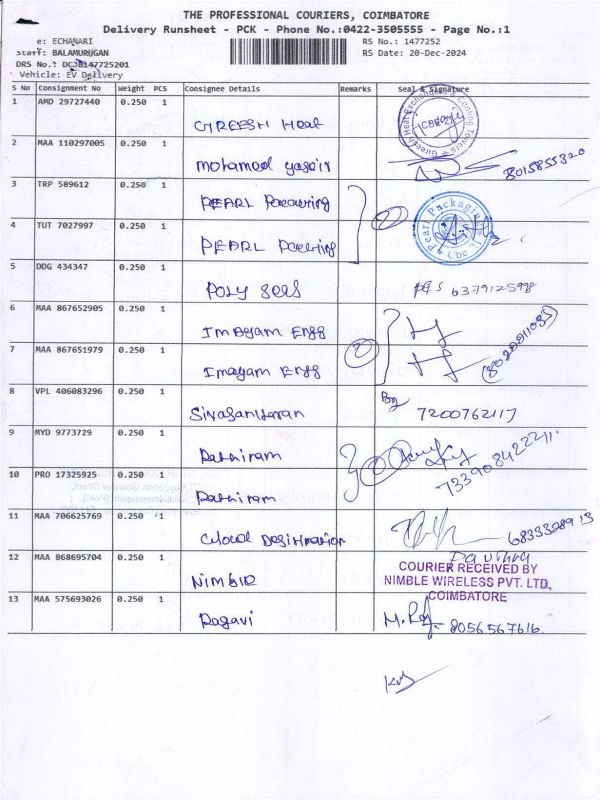 THE PROFESSIONAL COURIERS, COIMBATORE
Delivery Runsheet - PCK - Phone No.:0422-3505555 - Page No.:1
e: ECHANARI
RS No.: 1477252
Staff: BALAMURUGAN
RS Date: 20-Dec-2024
DRS No.: DCJB147725201
Vehicle: EV Delivery
S No Consignment No Weight PCS Consignee Details Remarks Seal & Signature
1 AMD 29727440 0.250 1 GIREESH Heat
Gireesh Heat Exchangers & Cooling Towers
2 MAA 110297005 0.250 1 mohamed yasair 8015855320
3 TRP 589612 0.250 1 PEARL
4 TUT 7027997 0.250 1 PEARL 2
Pearl Packagings Cbe
5 DDG 434347 0.250 1 POLY seals 6379125998
6 MAA 867652905 0.250 1 Imayam Engg
7 MAA 867651979 0.250 1 Imayam Engg 2
8 VPL 406083296 0.250 1 7200762117
9 MYD 9773729 0.250 1
10 PRO 17325925 0.250 1 2 7339084222
11 MAA 706625769 0.250 1 Cloud
12 MAA 868695704 0.250 1 Nimble
COURIER RECEIVED BY
NIMBLE WIRELESS PVT. LTD,
COIMBATORE
13 MAA 575693026 0.250 1 Ragavi 8056567616